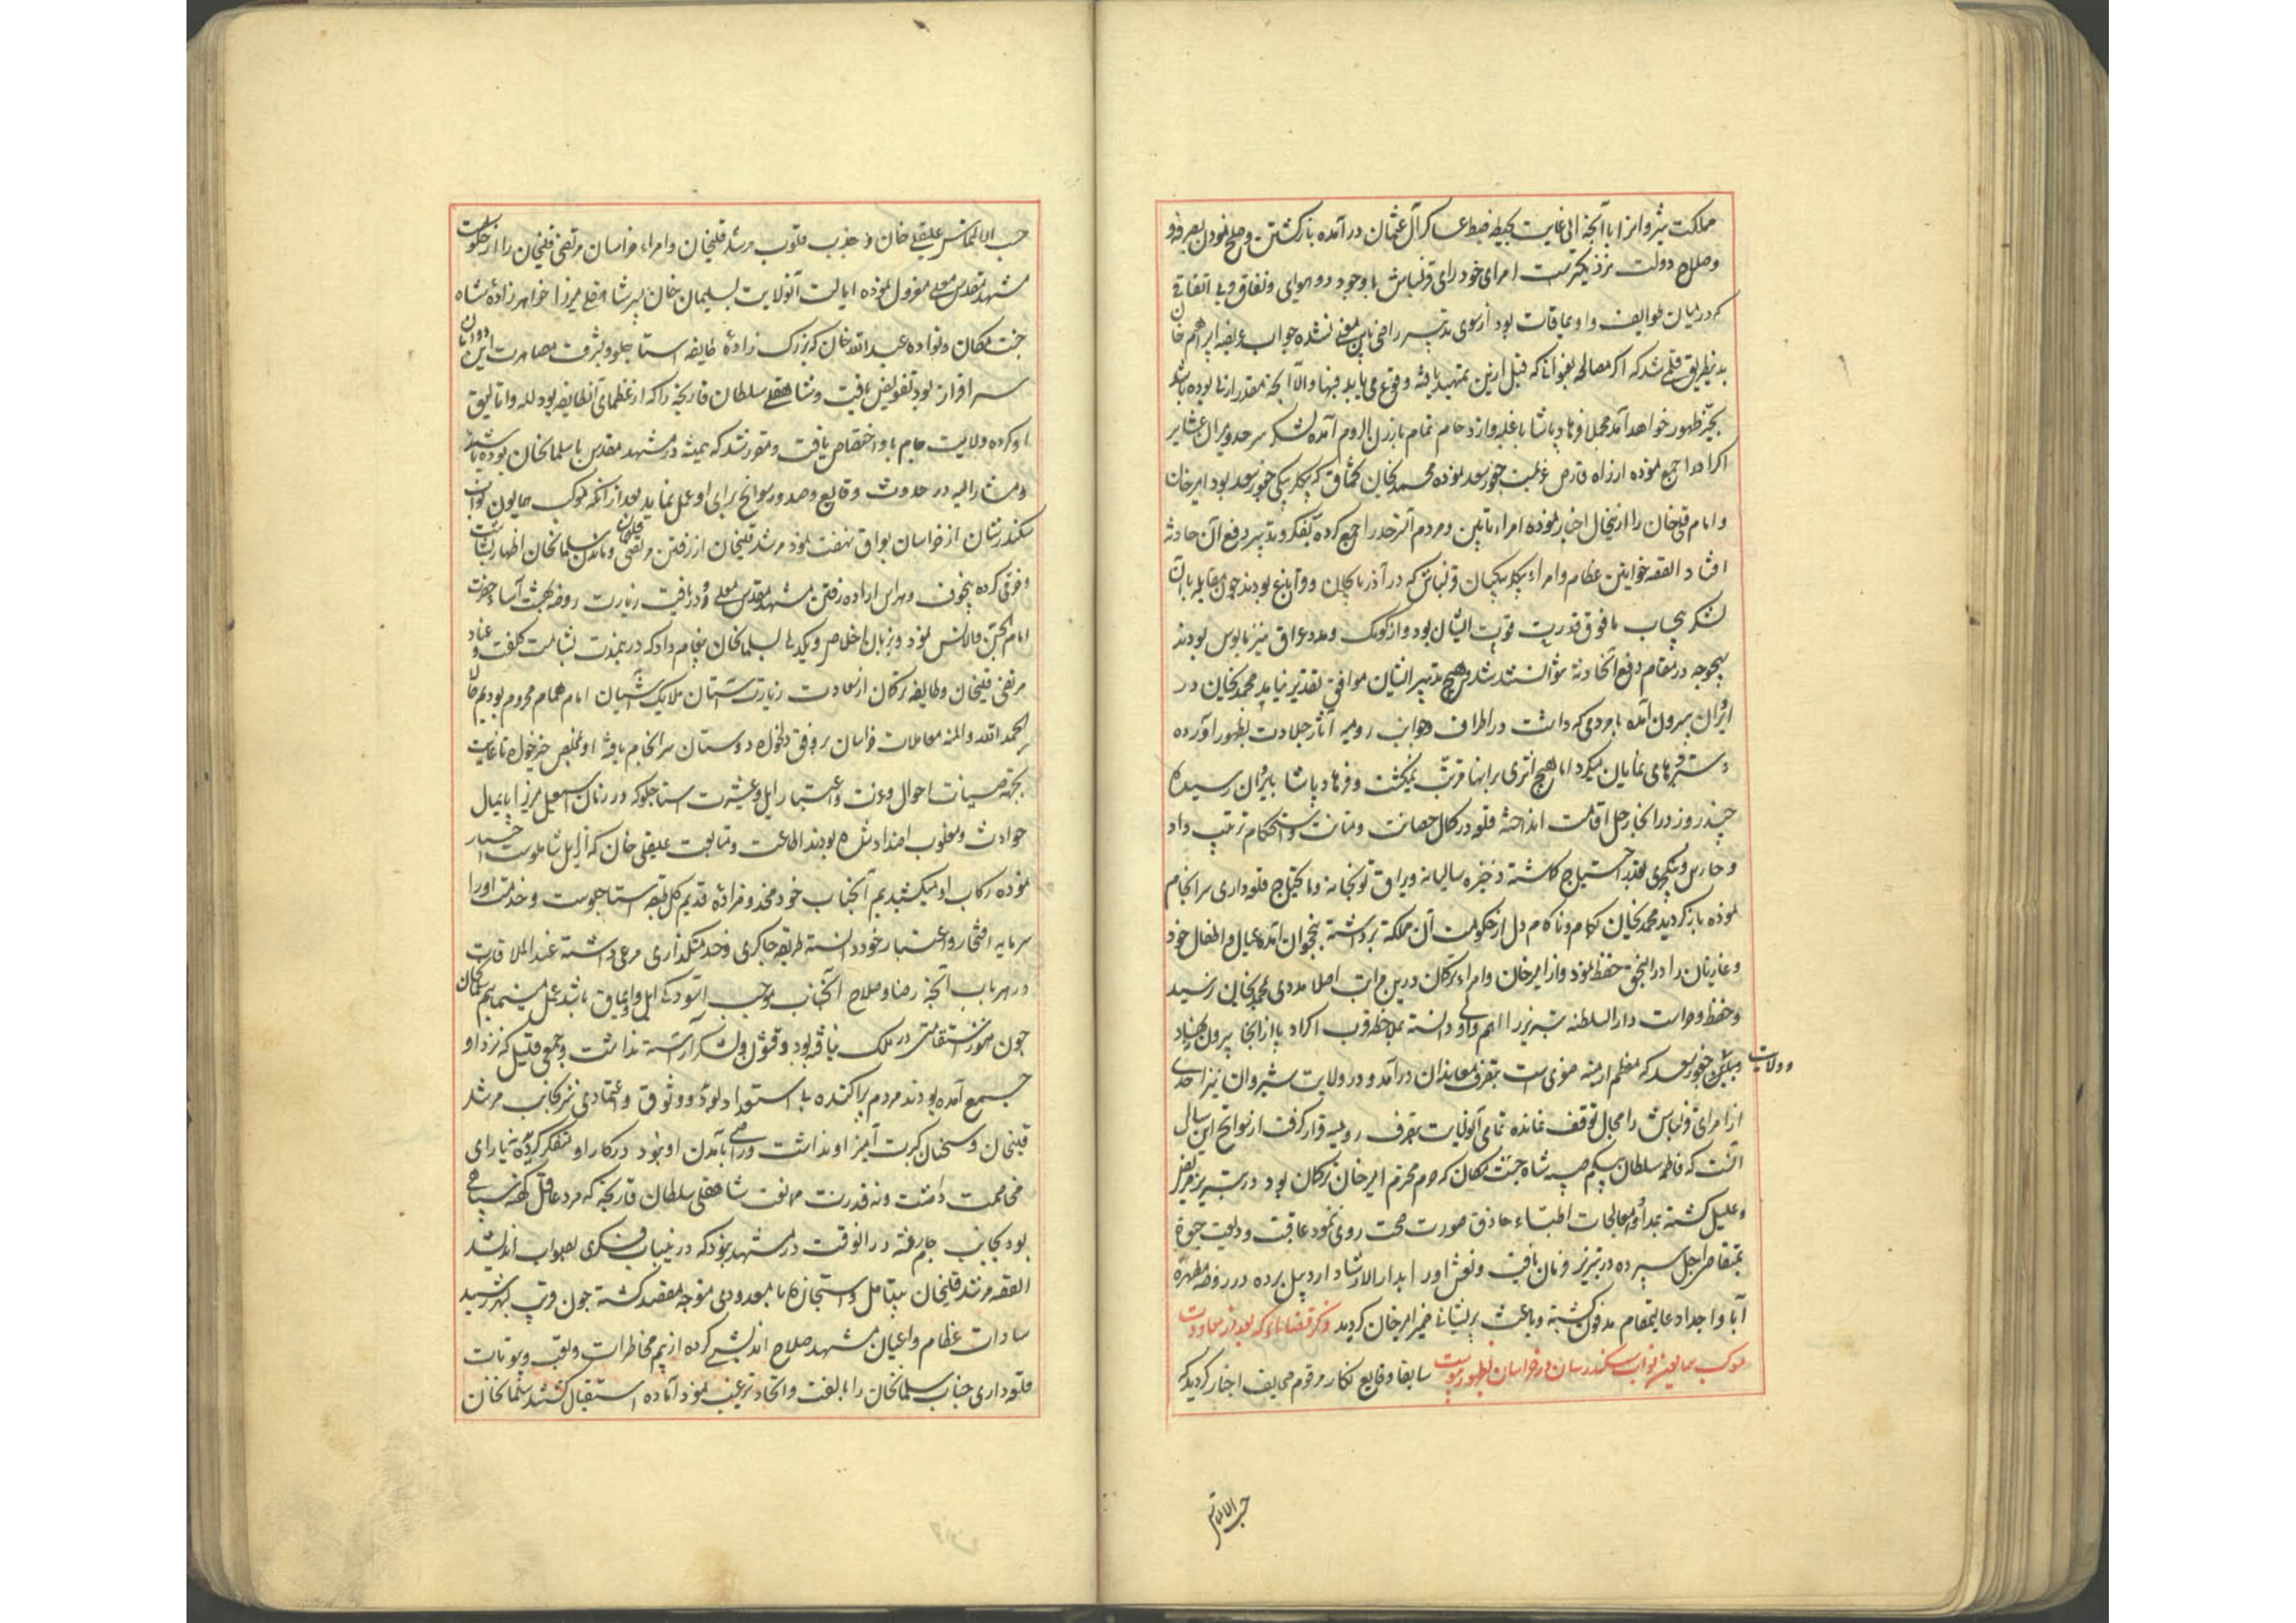 مملکت شروانرا با آنچه الی غایت بحیطه ضبط عساکر آل عثمان در آمده بازگشتن و صلح نمودن بصرفه و
و صلاح دولت نزدیکترست امرای خود رای قزلباش با وجود دو هوایی و نفاق و بی اتفاقی
که در میان طوایف و اویماقات بود از سوی تدبیر راضی باین معنی نشده جواب عریضه ابراهیم خان
بدینطریق قلمی شد که اگر مصالحه بعنوانی که قبل ازین تمهید یافته وقوع می یابد فبها والا آنچه مقدر ازلی بوده باشد
بحیز ظهور خواهد آمد مجملا فرهاد پاشا با غلبه و ازدحام تمام بارزن الروم آمده لشکر سرحد و میران عشایر
اکراد را جمع نموده از راه قارص عزیمت چخور سعد نموده محمدیخان تخماق که بیگلربیگی چخور سعد بود امیرخان
و امام قلیخان را ازینحال اخبار نموده امراء تابین و مردم آنسرحد را جمع کرده بفکر و تدبیر دفع آن حادثه
افتاد القصه خوانین عظام و امراء بیگلربیگیان قزلباش که در آذربایجان و قراباغ بودند چون مقابله با آن
لشکر بیحساب مافوق قدرت و قوت ایشان بود و از کومک و مدد عراق نیز مایوس بودند
بهیچوجه در مقام دفع آنحادثه نتوانستند شد و هیچ تدبیر ایشان موافق تقدیر نیامد محمدیخان در
ایروان بیرون آمده با مردمی که داشت در اطراف و جوانب رومیه آثار جلادت بظهور آورده
دستبردهای نمایان میکرد اما هیچ اثری بر آنها مترتب نمیگشت و فرهاد پاشا بایروان رسیده
چند روز در آنجا رحل اقامت انداخته قلعه در کمال حصانت و متانت و استحکام ترتیب داد
و حارس و ینگچری بقدر احتیاج گماشته ذخیره سالیانه و یراق توپخانه و مایحتاج قلعه داری سرانجام
نموده بازگردید محمدیخان کام و ناکام دل از حکومت آن مملکة برداشته بنخجوان آمده عیال و اطفال خود
و غازیان را در النجق حفظ نمود و از امیرخان و امراء ترکمان درین مراتب اصلا مددی بمحمدیخان نرسید
و حفظ و حراست دار السلطنه تبریز را اهم و اولی دانسته بملاحظه قرب اکراد پا از آنجا بیرون ننهاد
و ولایت
چخور سعد که معظم ارمینه صغری است بتصرف معاندان درآمد و در ولایت شیروان نیز احدی
از امرای قزلباش را مجال توقف نمانده تمامی آنولایت بتصرف رومیه قرار گرفت از سوانح این سال
آنست که فاطمه سلطان بیگم صبیه شاه جنت مکان که حرم محترم امیرخان ترکمان بود در تبریز مریض
و علیل گشته بمداوا و معالجات اطباء حاذق صورت صحت روی ننمود عاقبت ودیعت حیوة
بمتقاضی اجل سپرده در تبریز فرمان یافت و نعش او را بدار الارشاد اردبیل برده در روضه مطهره
آبا و اجداد عالیمقام مدفون گشته و باعث پریشانی ضمیر امیرخان گردید ذکر قضایائی که بعد از معاودت
موکب همایون نواب سکندرشان در خراسان بظهور پیوست سابقا وقایع نگار مرقوم صحایف اخبار گردید که
حسب الالتماس
حسب الالتماس علیقلی خان و جذب قلوب مرشد قلیخان و امراء خراسان مرتضی قلیخان را از حکومت
مشهد مقدس معلی معزول نموده ایالت آنولایت بسلیمان خان پسر شاهقلی میرزا خواهرزاده شاه
جنت مکان و نواده عبدالله خان که بزرگ زاده طایفه استاجلو و بشرف مصاهرت این دودمان
سرافراز بود تفویض یافت و شاهقلی سلطان قارنجه را که از عظمای آنطایفه بود لله و اتالیق
او کرده ولایت جام باو اختصاص یافت و مقرر شد که همیشه در مشهد مقدس با سلیمانخان بوده باشد
و مشارالیه در حدوث وقایع و صدور سوانح برای او عمل نماید بعد از آنکه موکب همایون نواب
سکندرشان از خراسان بعراق نهضت نمود مرشد قلیخان از رفتن مرتضی قلیخان و ماندن سلیمانخان اظهار بشاشت
و خوشی کرده بیخوف و هراس اراده رفتن مشهد مقدس معلی و دریافت زیارت روضه بهشت آساء حضرت
امام الجن والانس نمود و بزبان اخلاص و یکدلی بسلیمانخان پیغام داد که درینمدت بشامت کلفت و عناد
مرتضی قلیخان و طایفه ترکمان از سعادت زیارت آستان ملایک آشیان امام همام محروم بودیم حالا
بحمدالله والمنه معاملات خراسان بر وفق دلخواه دوستان سرانجام یافته او بنفس خیر خواه تا غایت
بجهة صیانت احوال و عزت و اعتبار ایل و عشیرت استاجلو که در زمان اسمعیل میرزا پایمال
حوادث و مغلوب اضداد شده بودند اطاعت و متابعت علیقلی خان که از ایل شاملوست اختیار
نموده رکاب او میکشیدیم آنجناب خود مخدومزاده قدیم کل قبیله استاجلوست و خدمت او را
سرمایه افتخار و اعتبار خود دانسته طریقه چاکری و خدمتکذاری مرعی داشته عند الملاقات
در هر باب آنچه رضا و صلاح آنجناب و موجب آسودگی ایل و اویماق باشد بعمل می‌آوریم سلیمانخان
چون هنوز استقامتی در ملک نیافته بود و قشون و لشکر آراسته نداشت و جمعی قلیل که نزد او
جمع آمده بودند مردم پراکنده بی استعداد بوده و وثوق و اعتمادی نیز بجانب مرشد
قلیخان و سخنان کبریت آمیز او نداشت و راضی بآمدن او نبود در کار او متفکر گردیده نه یارای
مخاصمت داشت و نه قدرت ممانعت شاهقلی سلطان قارنجه که مرد عاقل کهنه سپاهی
بود بجانب جام رفته در آنوقت در مشهد نبود که درین باب فکری بصواب اندیشد
القصه مرشد قلیخان بی تامل و استیجازه با معدودی متوجه مقصد گشته چون قریب بشهر رسید
سادات عظام و اعیان مشهد صلاح اندیشی کرده از بیم مخاطرات و تعب و صعوبت
قلعه داری جناب سلیمانخان را بالفت و اتحاد ترغیب نمود آماده استقبال گشتند سلیمانخان